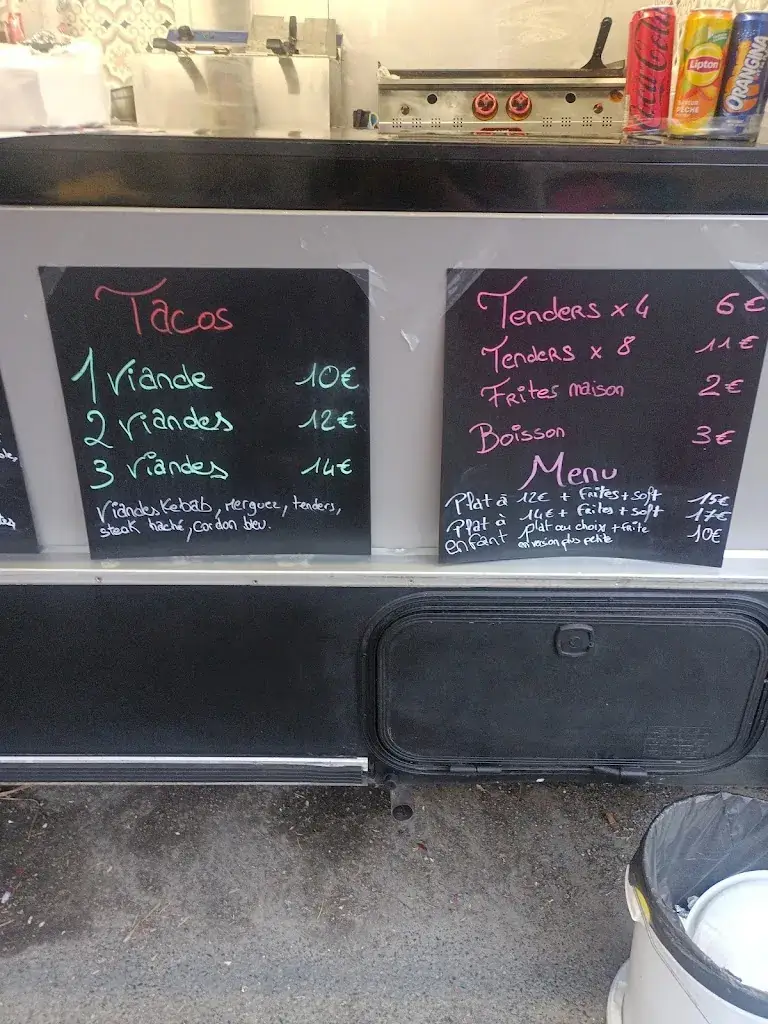 Coca-Cola
Lipton
SAVEUR
PÊCHE
ORANGINA
Tacos
1 Viande 10€
2 viandes 12€
3 viandes 14€
Viandes Kebab, merguez, tenders,
steak haché, cordon bleu.
Tenders x 4 6€
Tenders x 8 11€
Frites maison 2€
Boisson 3€
Menu
Plat à 12€ + frites + soft 15€
Plat à 14€ + frites + soft 17€
enfant plat au choix + frite 10€
en version plus petite